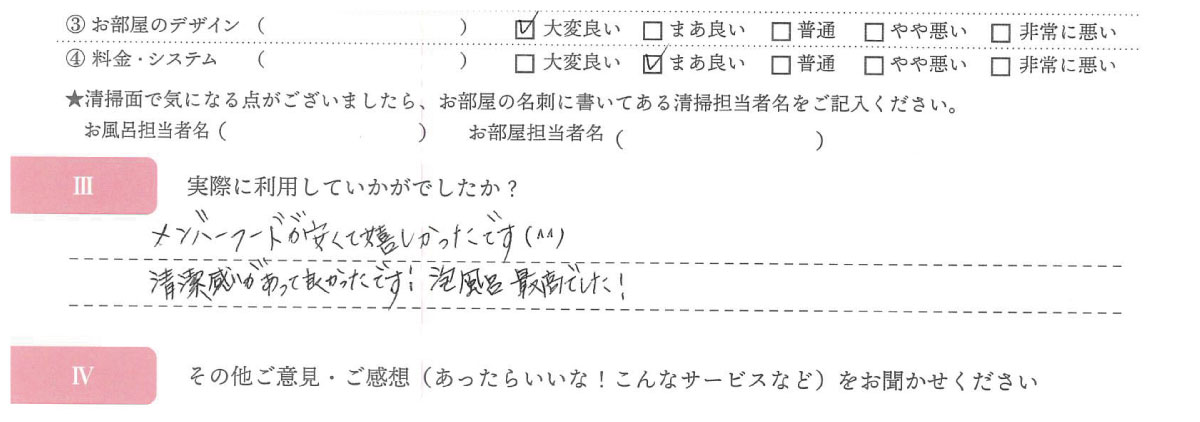 ③ お部屋のデザイン ( ) ☑ 大変良い □ まあ良い □ 普通 □ やや悪い □ 非常に悪い
④ 料金・システム ( ) □ 大変良い ☑ まあ良い □ 普通 □ やや悪い □ 非常に悪い
★清掃面で気になる点がございましたら、お部屋の名刺に書いてある清掃担当者名をご記入ください。
お風呂担当者名 ( ) お部屋担当者名 ( )
Ⅲ 実際に利用していかがでしたか？
メンバーフードが安くて嬉しかったです(^^)
清潔感があって良かったです! 泡風呂最高でした!
Ⅳ その他ご意見・ご感想（あったらいいな！こんなサービスなど）をお聞かせください